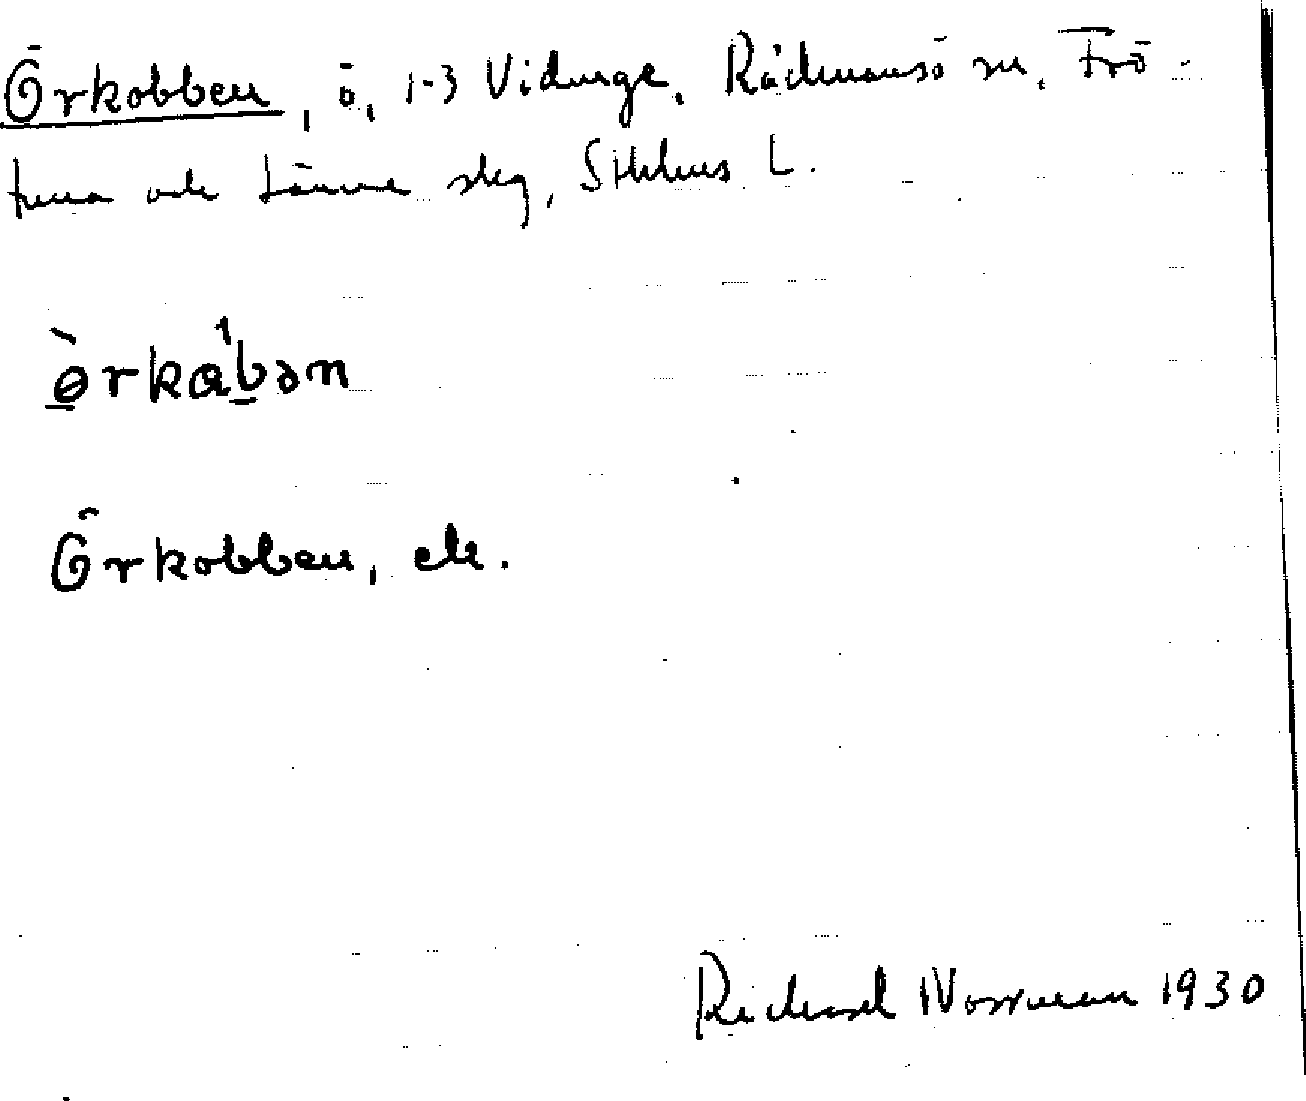 Örkobben, ö, 1-3 Vidinge, Rådmansö sn, Frö-
tuna och Länna skg, Sthlms L.
ờrkàbən
Örkobben, ek.
Richard Norrman 1930